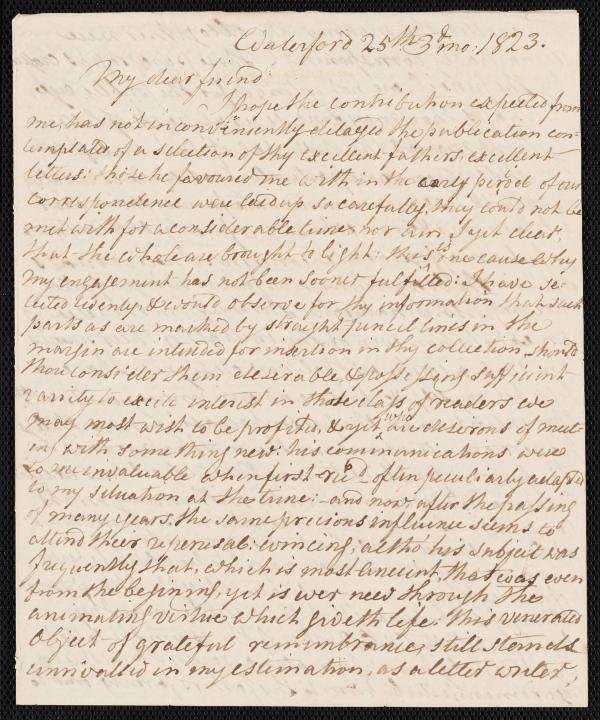 Waterford 25th 3d mo: 1823.
My dear friend
I hope the contribution expected from
me, has not inconveniently delayed the publication con-
templated of a selection of thy excellent fathers excellent
letters: those he favoured me with in the early period of our
correspondence were laid up so carefully, they could not be
met with for a considerable time, nor am I yet clear,
that the whole are brought to light: this is one cause why
my engagement has not been sooner fulfilled: I have se-
lected twenty, & would observe for thy information that such
parts as are marked by straight pencil lines in the
margin are intended for insertion in thy collection, should
thou consider them desirable, & possessing sufficient
variety to excite interest in those class of readers we
may most wish to be profited, & yet who are desirous of meet-
ing with something new: his communications were
to me invaluable when first rec'd - often peculiarly adapted
to my situation at the time: - and now after the passing
of many years, the same precious influence seems to
attend their reperusal: evincing, altho his subject was
frequently that, which is most ancient, that was even
from the begining, yet is ever new through the
animating virtue which giveth life: this venerated
object of grateful remembrance, still stands
unrivalled in my estimation, as a letter writer,